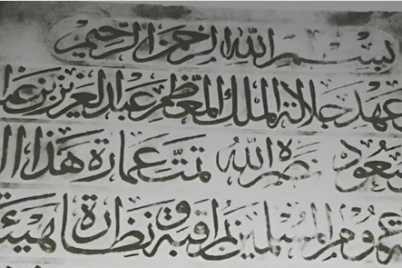 بسم الله الرحمن الرحيم
عهد جلالة الملك المعظم عبد العزيز بن
سعود نصره الله تمت عمارة هذا
المسلمين بمراقبة ونظارة هيئة